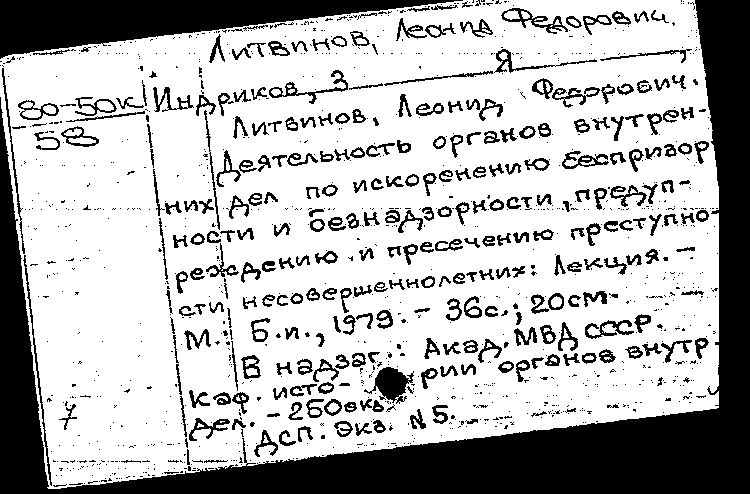 Литвинов, Леонид Федорович.
80-50к Индриков, З Я
58 Литвинов, Леонид Федорович.
Деятельность органов внутрен-
них дел по искоренению беспризор
ности и безнадзорности, предуп-
реждению и пресечению преступно-
сти несовершеннолетних: Лекция. –
М.: Б.и., 1979. – 36с.; 20см.
В надзаг.: Акад. МВД СССР.
Каф. исто- рии органов внутр.
дел. – 250экз
ДСП. Экз. N 5.
7